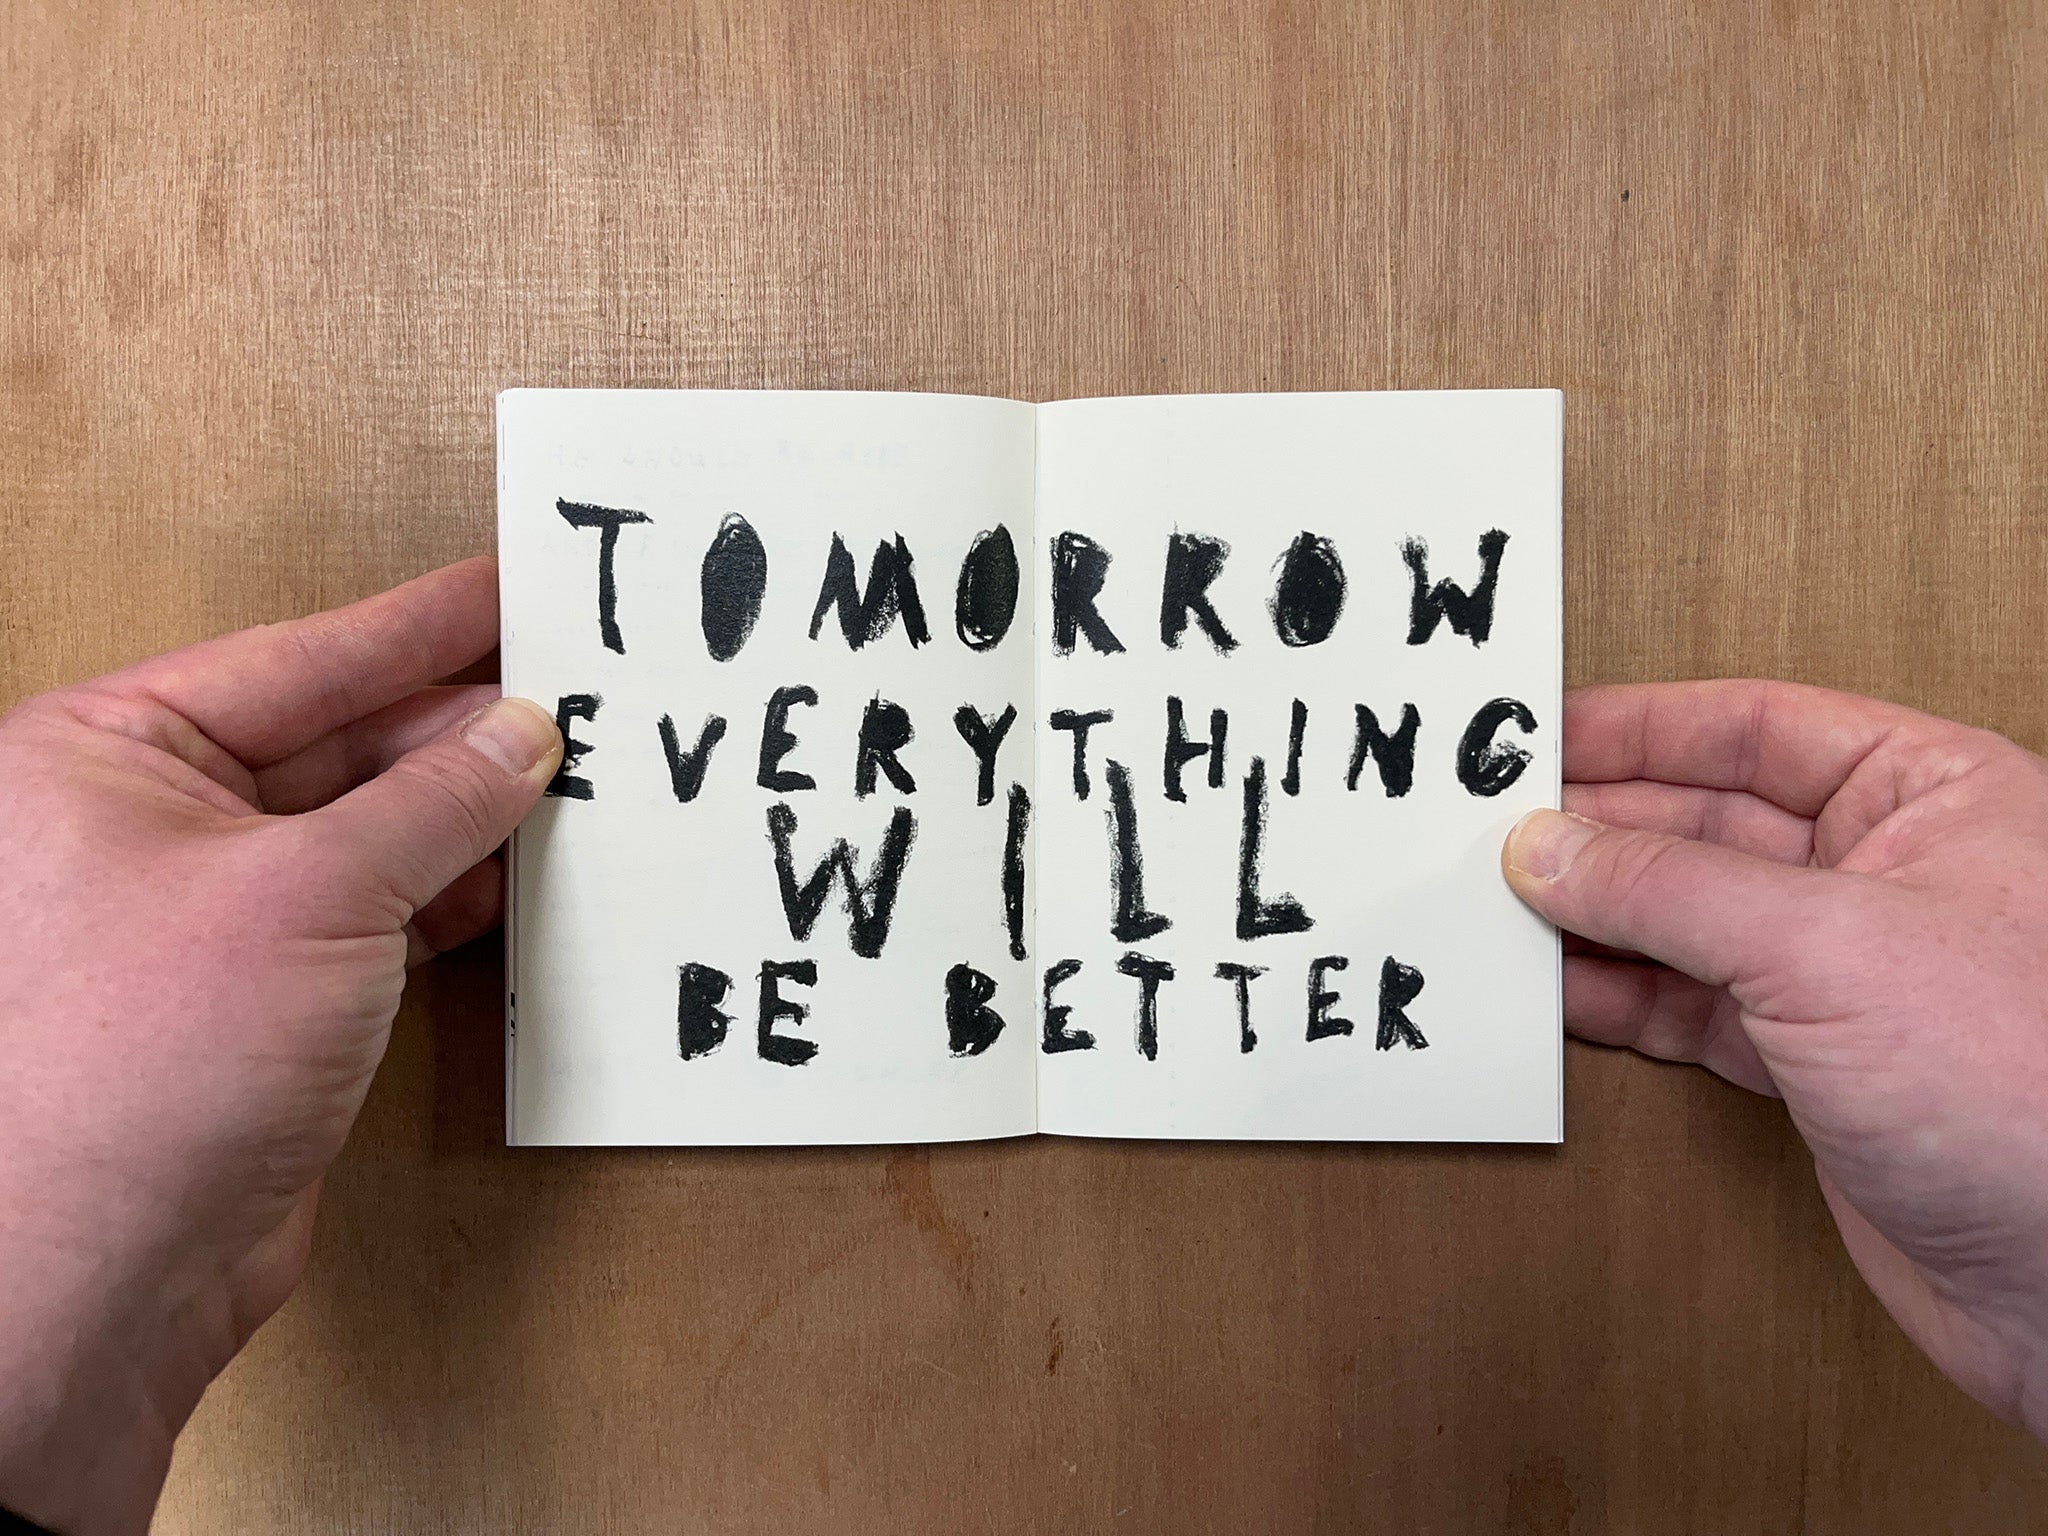 TOMORROW
EVERYTHING
WILL
BE BETTER